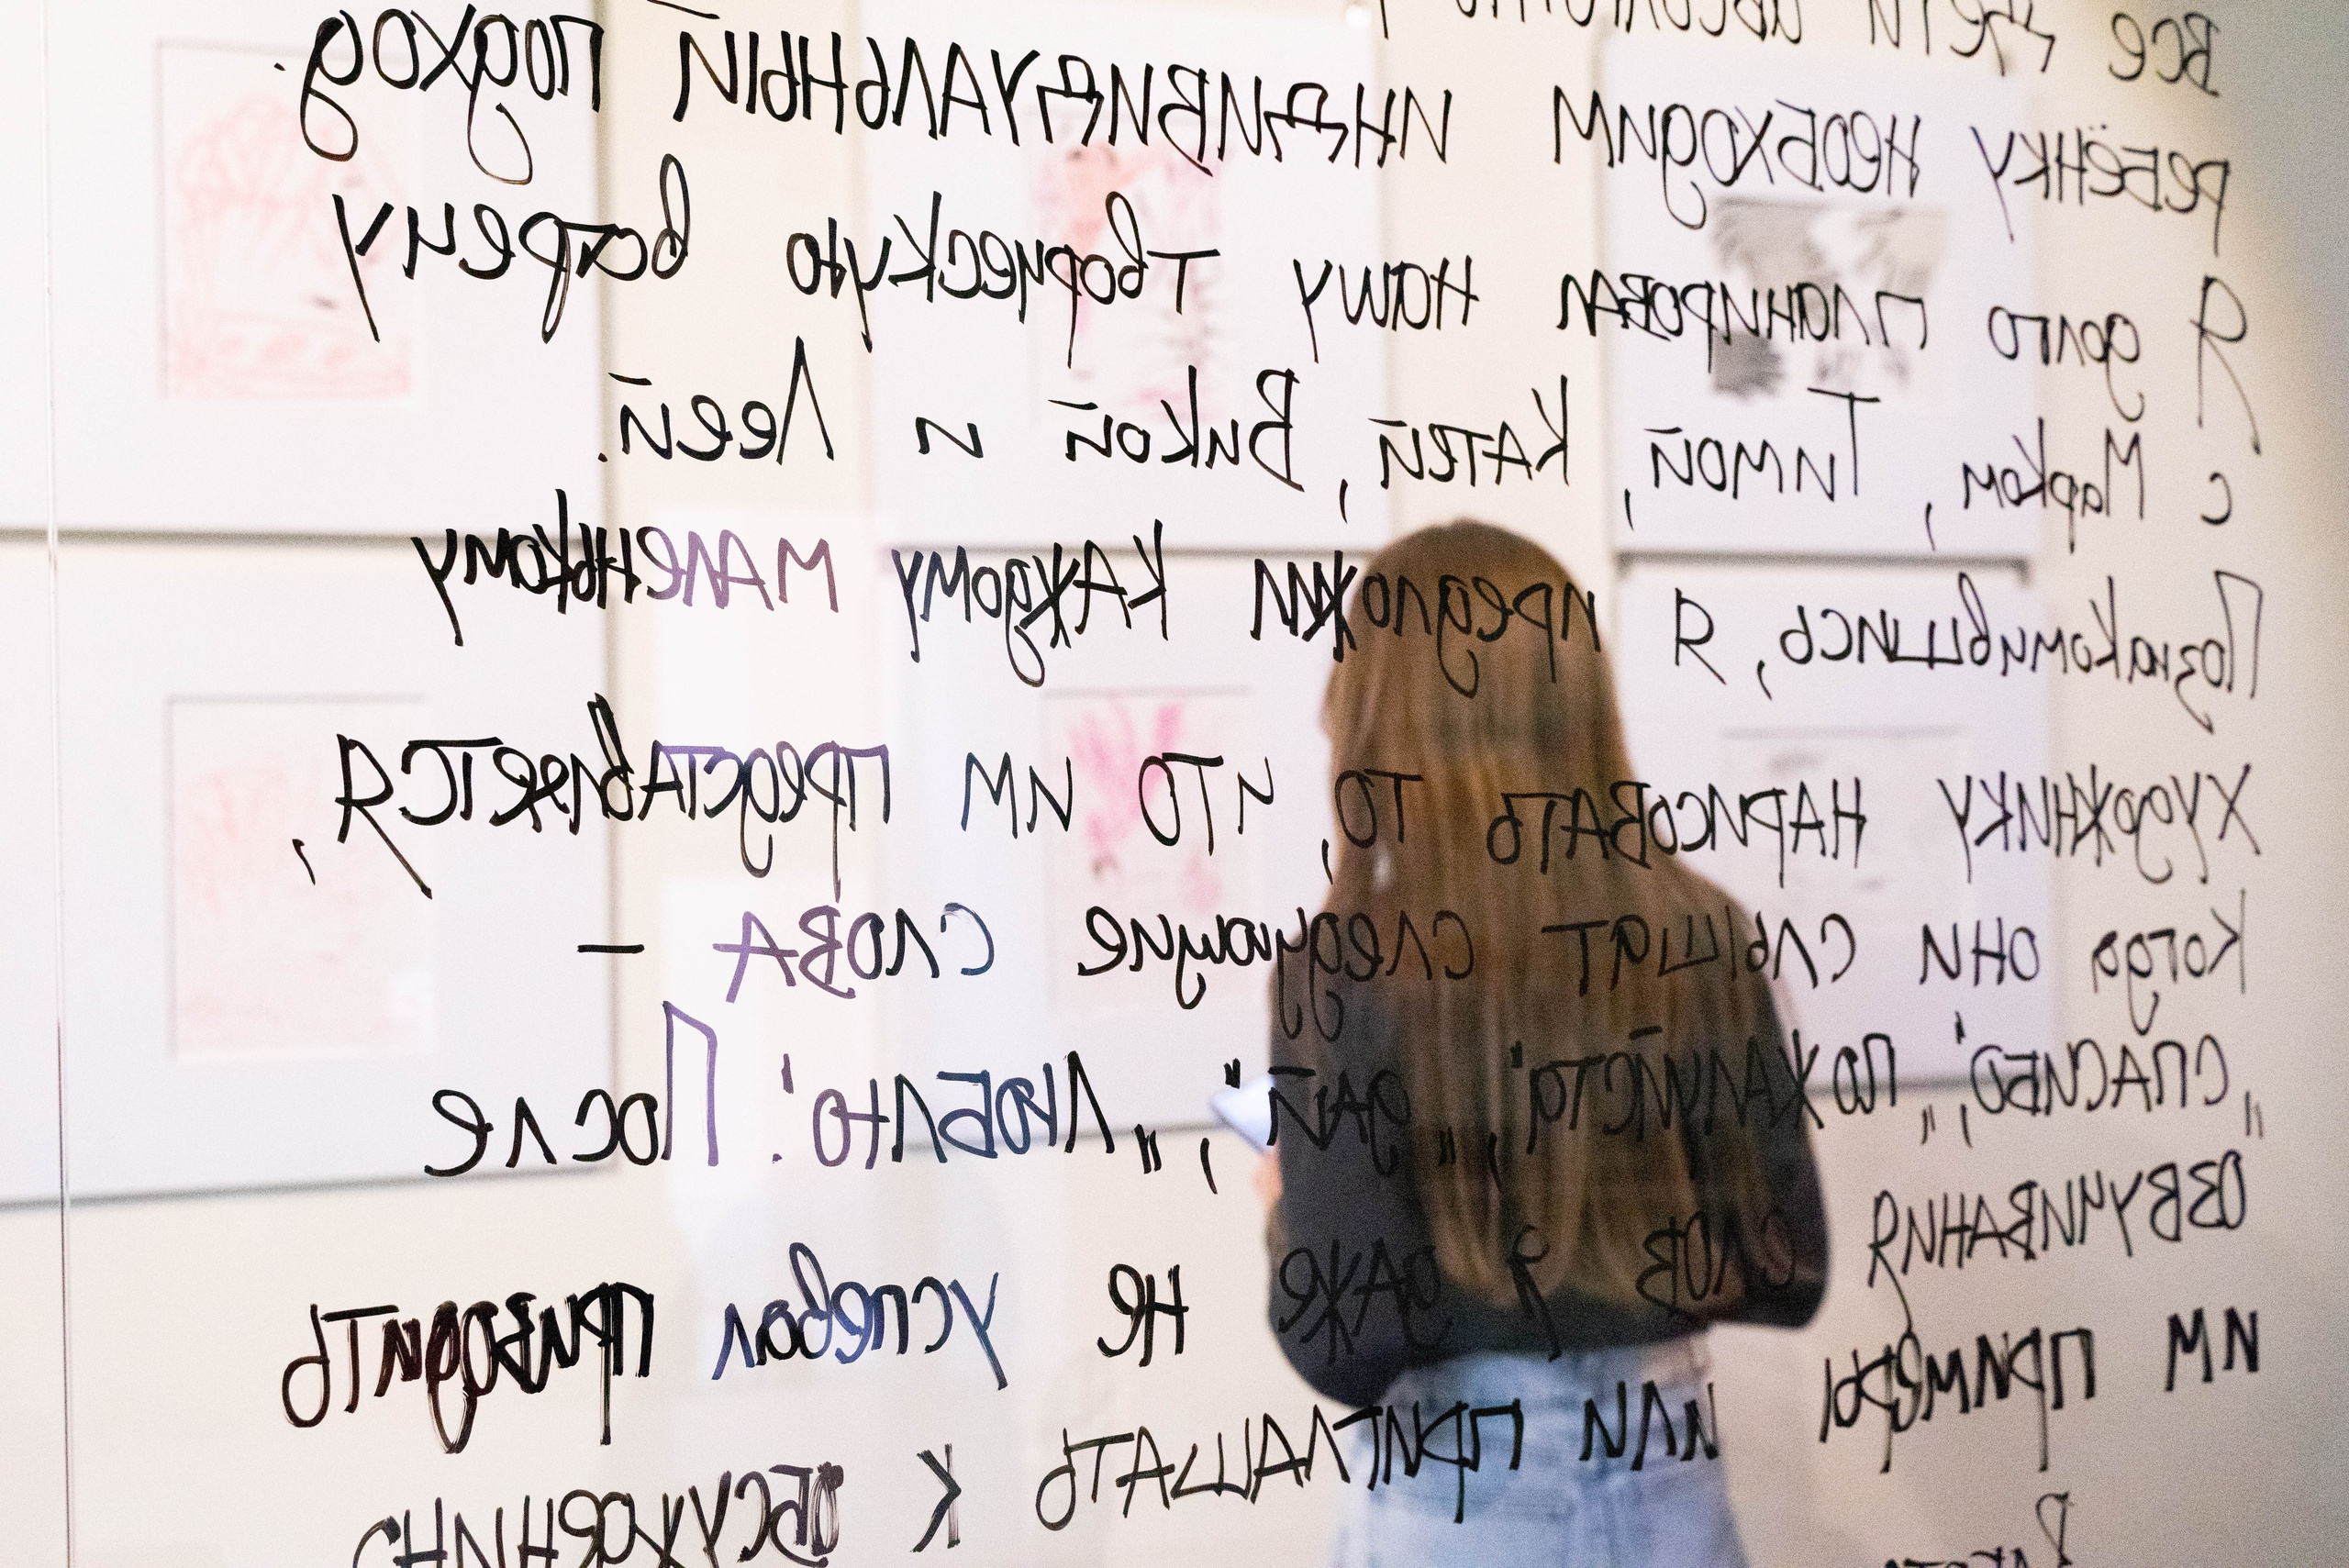 ВСЕ ДЕТИ
РЕБЁНКУ НЕОБХОДИМ ИНДИВИДУАЛЬНЫЙ ПОДХОД.
Я долго планировал нашу творческую встречу
с Марком, Тимой, Катей, Викой и Леей.
Познакомившись, я предложил каждому маленькому
художнику нарисовать то, что им представляется,
Когда они слышат следующие слова –
„спасибо", „пожалуйста", „дай", „люблю". После
озвучивания слов я даже не успевал приводить
им примеры или приглашать к